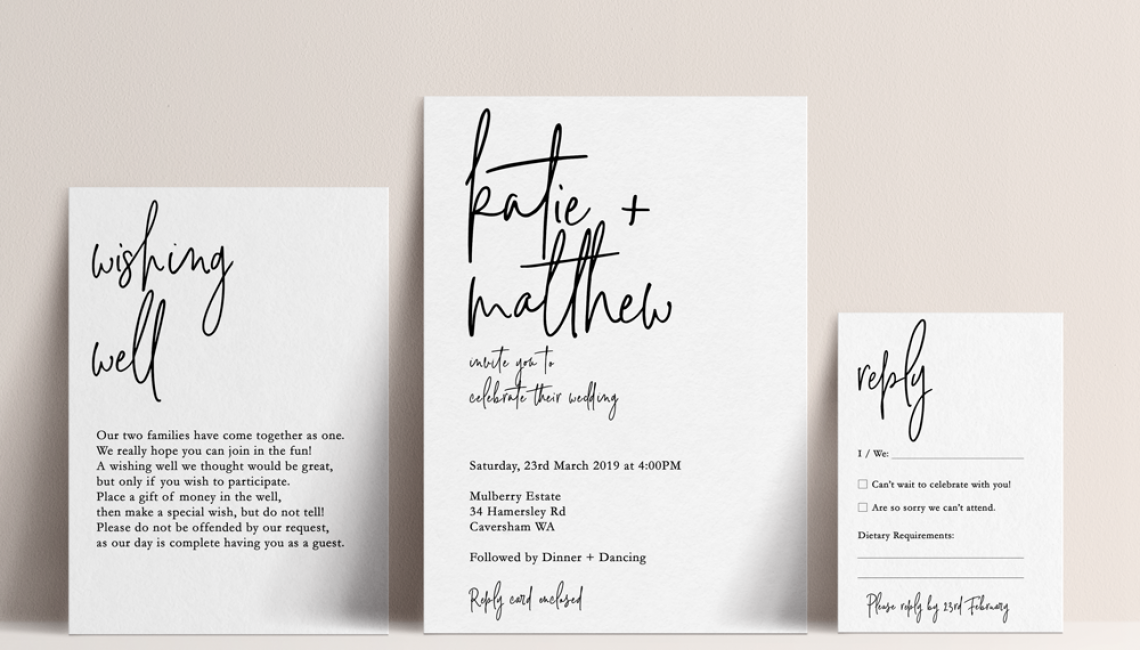 wishing
well
Our two families have come together as one.
We really hope you can join in the fun!
A wishing well we thought would be great,
but only if you wish to participate.
Place a gift of money in the well,
then make a special wish, but do not tell!
Please do not be offended by our request,
as our day is complete having you as a guest.
katie +
matthew
invite you to
celebrate their wedding
Saturday, 23rd March 2019 at 4:00PM
Mulberry Estate
34 Hamersley Rd
Caversham WA
Followed by Dinner + Dancing
Reply card enclosed
reply
I / We:
Can't wait to celebrate with you!
Are so sorry we can't attend.
Dietary Requirements:
Please reply by 23rd February